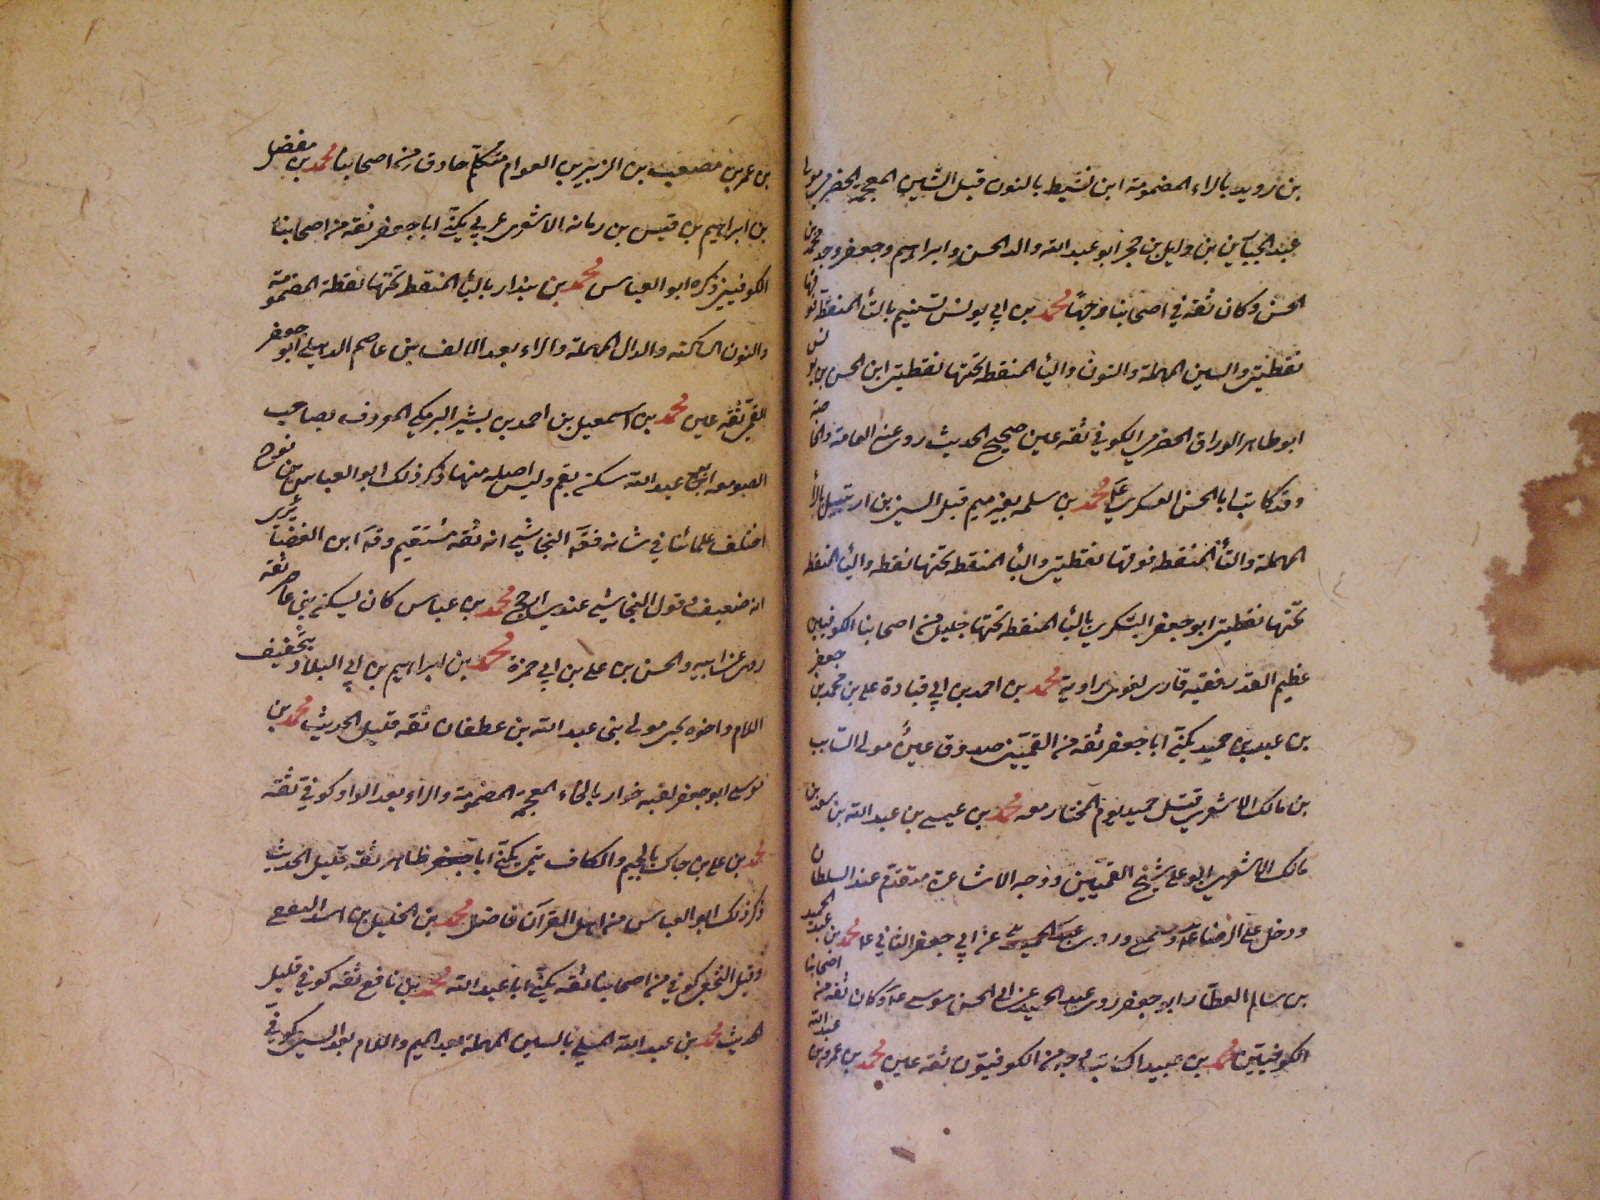 بن رويد بالراء المضمومة ابن نشيط بالنون قبل الشين المعجمة الحضرمي مولى
عبد الجبار بن وايل بن حجر ابو عبد الله والد الحسن وابراهيم وجعفر وجد محمد بن
الحسن وكان ثقة في اصحابنا وجهًا محمد بن ابي يونس تسنيم بالتاء المنقطة فوقها
نقطتين والسين المهملة والنون والياء المنقطة تحتها نقطتين ابن الحسن بن يونس
ابو طاهر الوراق الحضرمي الكوفي ثقة عين صحيح الحديث روى عنه العامة والخاصة
وقد كاتب ابا الحسن العسكري محمد بن سلمه بغير ميم قبل السين بن ارتبيل بالراء
المهملة والتاء المنقطة فوقها نقطتين والباء المنقطة تحتها نقطة والياء المنقطة
تحتها نقطتين ابو جعفر اليشكري بالياء المنقطة تحتها جليل من اصحابنا الكوفيين
عظيم القدر فقيه قارى لغوى راوية محمد بن احمد بن ابي قتادة على بن محمد بن جعفر
بن عبيد بن حميد يكنى ابا جعفر ثقة من القميين صدوق عين مولى السايب
بن مالك الاشعري قتل حميد يوم المختار معه محمد بن عيسى بن عبد الله بن سعد بن
مالك الاشعري ابو علي شيخ القميين ووجه الاشاعرة متقدم عند السلطان
ودخل على الرضا وسمع وروى عن ابي جعفر الثاني محمد بن عبد الحميد
بن سالم العطار ابو جعفر روى عبد الحميد عن ابى الحسن موسى وكان ثقة من اصحابنا
الكوفيين محمد بن عبيد الكاتب وجه من الكوفيون ثقة عين محمد بن عمرو بن عبد الله
بن عمر بن مصعب بن الزبير بن العوام متكلم حاذق من اصحابنا محمد بن مفضل
بن ابراهيم بن قيس بن رمانه الاشعرى عربي يكنى ابا جعفر ثقة من اصحابنا
الكوفيين ذكره ابو العباس محمد بن بندار بالباء المنقطة تحتها نقطة المضمومة
والنون الساكنه والدال المهملة والراء بعد الالف بن عاصم ابو جعفر
القمي ثقة عين محمد بن اسمعيل بن احمد بن بشير البرمكي المعروف بصاحب
الصومعه ابو عبد الله سكن بقم وليس اصله منها ذكر ذلك ابو العباس بن نوح
اختلف علمائنا في شانه فقال النجاشي انه ثقة مستقيم وقال ابن الغضائري
انه ضعيف وقول النجاشي عندي ارجح محمد بن عباس كان يسكن بنى غاضرة ثقة
روى عن ابيه والحسن بن على بن ابي حمزة محمد بن ابراهيم بن ابي البلاد بتخفيف
اللام واخوه يحيى مولى بنى عبد الله بن غطفان ثقة قليل الحديث محمد بن
موسى ابو جعفر لقبه خوار بالخاء المعجمة المضمومة والراء بعد الواو كوفي ثقة
محمد بن على بن جاك بالجيم والكاف يكنى ابا طاهر ثقة قليل الحديث
ذكر ذلك ابو العباس من اهل القرآن فاضل محمد بن الخليل بن اسد
وقيل النخعي كوفي من اصحابنا ثقة يكنى ابا عبد الله محمد بن نافع ثقة كوفي قليل
الحديث محمد بن عبد الله المسلي بالسين المهملة بعد الميم واللام بعد السين كوفي